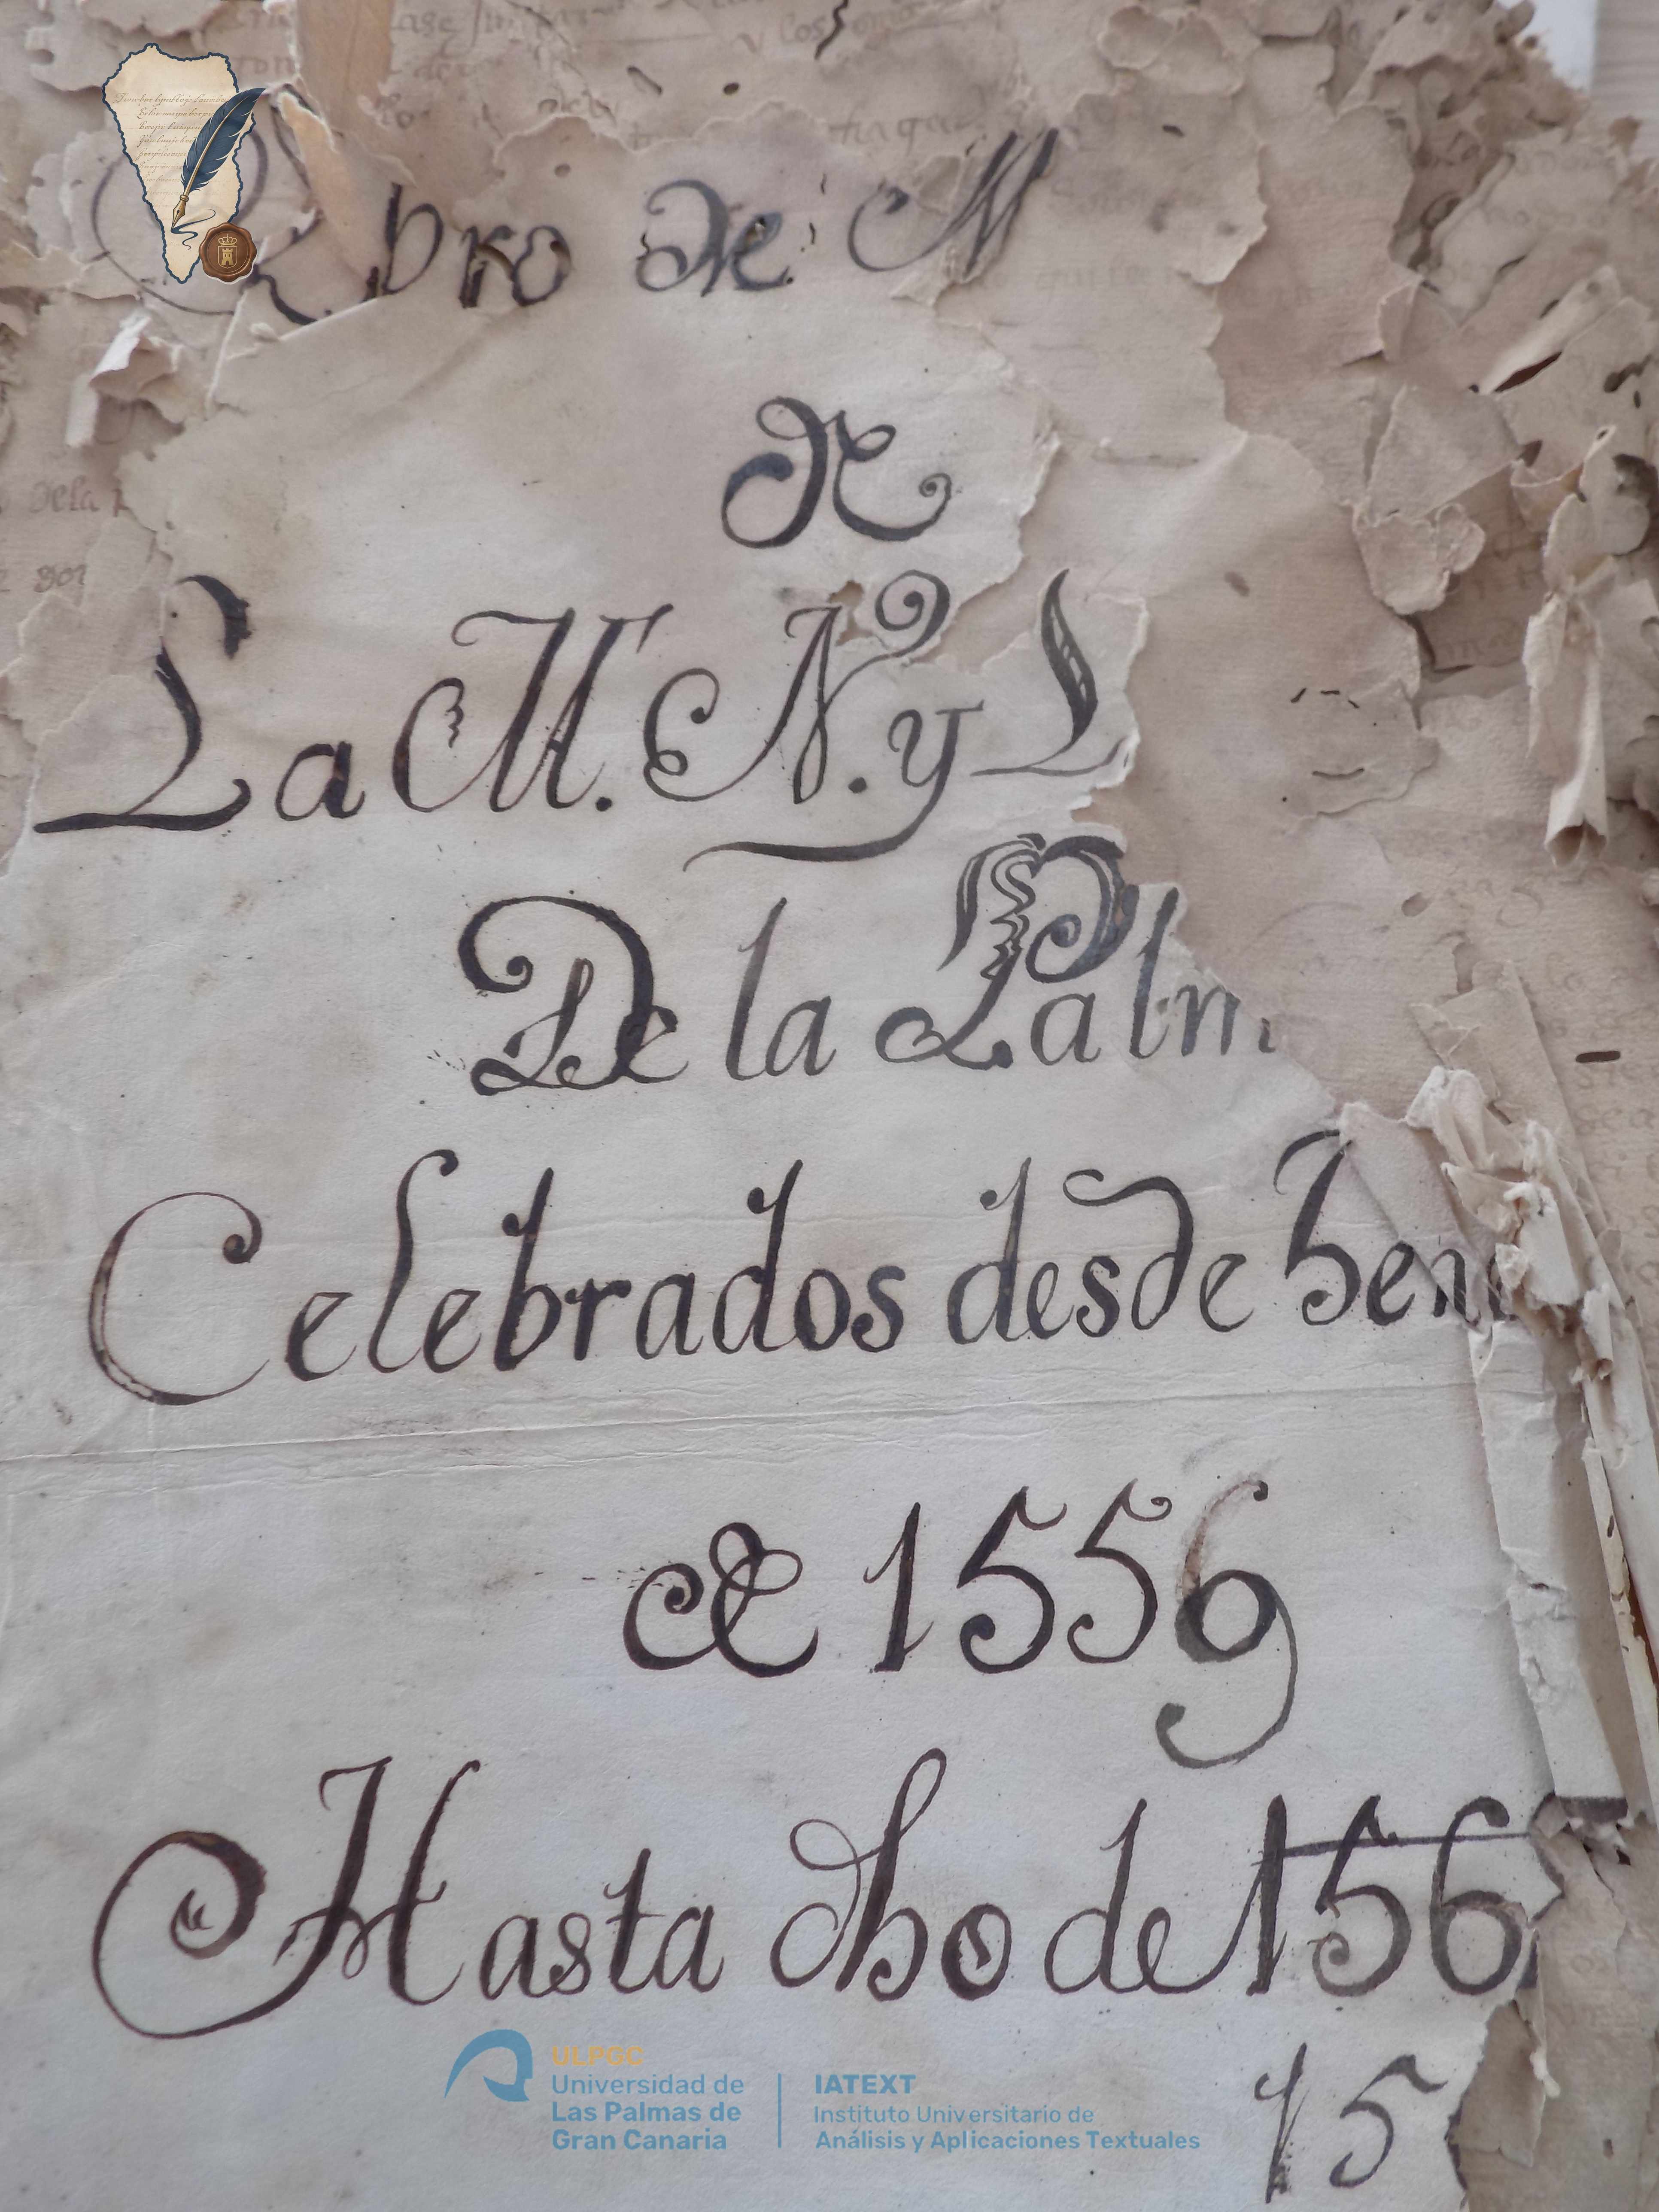 Libro de M
de
La M. N. y L
De la Palm
Celebrados desde hene
de 1556
Hasta dho de 156
15
ULPGC
Universidad de
Las Palmas de
Gran Canaria
IATEXT
Instituto Universitario de
Análisis y Aplicaciones Textuales